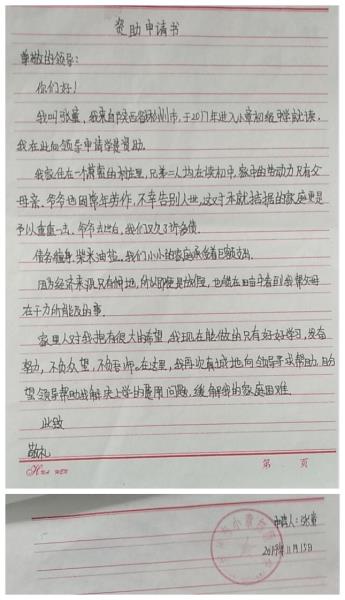 资助申请书
尊敬的领导:
你们好!
我叫张董,我来自陕西省 州市,于2017年进入小章初级中学就读,
我在此向领导申请学 资助。
我家住在一个 的村庄里,兄弟二人均在读初中,家中的劳动力只有父
母亲,爷爷也因常年劳作,不幸告别人世,这对本就拮据的家庭更是
予以重重一击,爷爷去世后,我们又欠了许多债.
债务缠身,柴米油盐..我们小小的家庭承受着巨额支出.
因为经济来源只有种地,所以即便是放假,也能在田亩中看到我帮父母
在干力所能及的事.
家里人对我抱有很大的希望,我现在能做的只有好好学习,发奋
努力,不负众望,不负 师。在这里,我再次真诚地向领导寻求帮助,盼
望领导帮助我解决上学的费用问题,缓解我的家庭困难.
此致
敬礼
第 页
申请人:张董
2019年11月15日